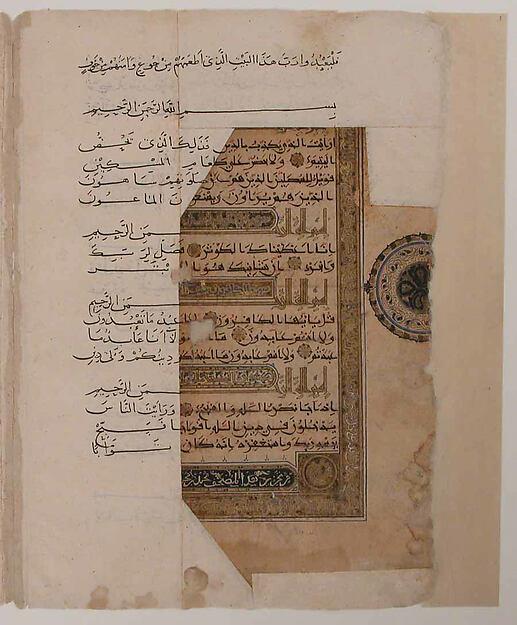 فليعبدوا رب هذا البيت الذي اطعمهم من جوع وامنهم من خوف
بسم الله الرحمن الرحيم
ارايت الذي يكذب بالدين فذلك الذي
اليتيم ولا يحض على طعام المسكين
فويل للمصلين الذين هم عن صلاتهم ساهون
الذين هم يراون ويمنعون الماعون
بسم الرحمن الرحيم
انا اعطيناك الكوثر فصل لربك
وانحر ان شانيك هو الابتر
بسم الرحمن الرحيم
قل يايها الكافرون لا اعبد ما تعبدون
ولا انتم عابدون ما اعبد ولا انا عابد ما
عبدتم ولا انتم عابدون ما اعبد لكم دينكم ولي دين
بسم الرحمن الرحيم
اذا جا نصر الله والفتح ورايت الناس
يدخلون في دين الله افواجا فسبح
بحمد ربك واستغفره انه كان توابا